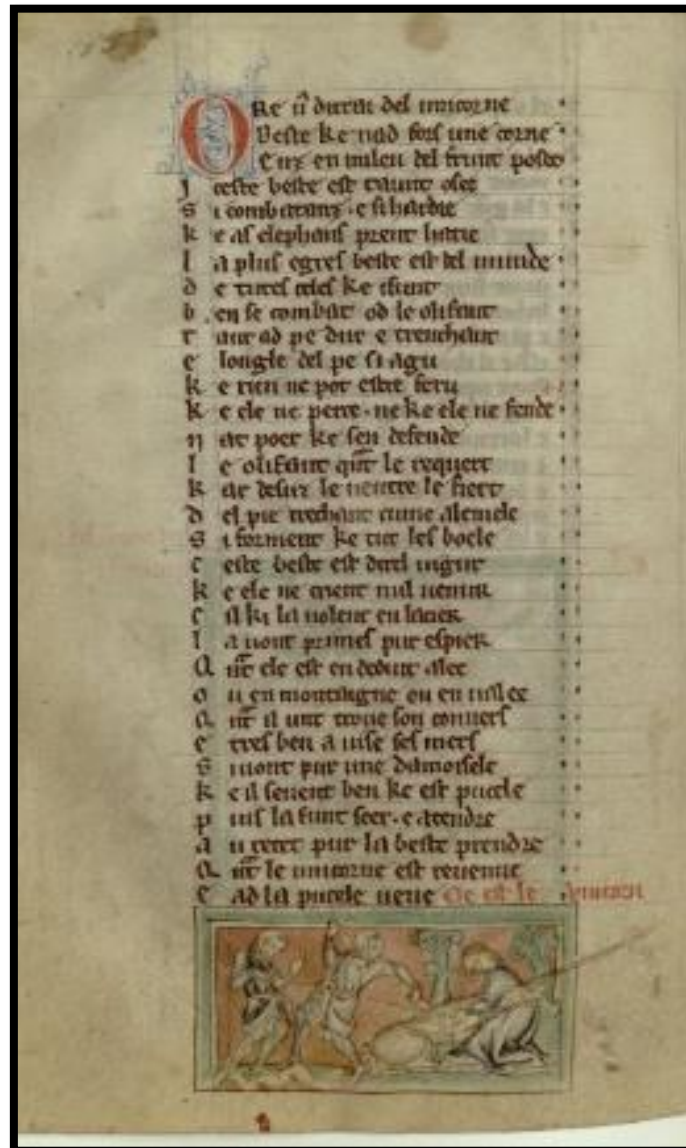 ORe u dirai del unicorne
Beste ke nad fors une corne
Enz en mileu del frunt posee
I ceste beste est taunt osee
S i combatanz . e si hardie
K e as elephans prent hatie
L a plus egres beste est del munde
D e tutes celes ke i sunt
B en se combat od le olifant
T ant ad pe dur e trenchant
E longle del pe si agu
K e rien ne pot estre feru
K e ele ne perce . ne ke ele ne fende
N at poer ke sen defende
L e olifant qant le requert
K ar desuz le uentre le fiert
D el pie trechant cume alemele
S i forment ke tut les boele
C este beste est de tel uigur
K e ele ne crient nul ueneur
C il ki la uolent en lacier
L a uont primes pur espier
Q ant ele est en deduit alee
O u en montaigne ou en ualee
Q ant il unt troue son conuers
E tres ben a uise ses mers
S i uont pur une damoisele
K e il seuent ben ke est pucele
P uis la funt seer . e atendre
A u recet pur la beste prendre
Q ant le unicorne est reuenue
E ad la pucele ueue Ce est le